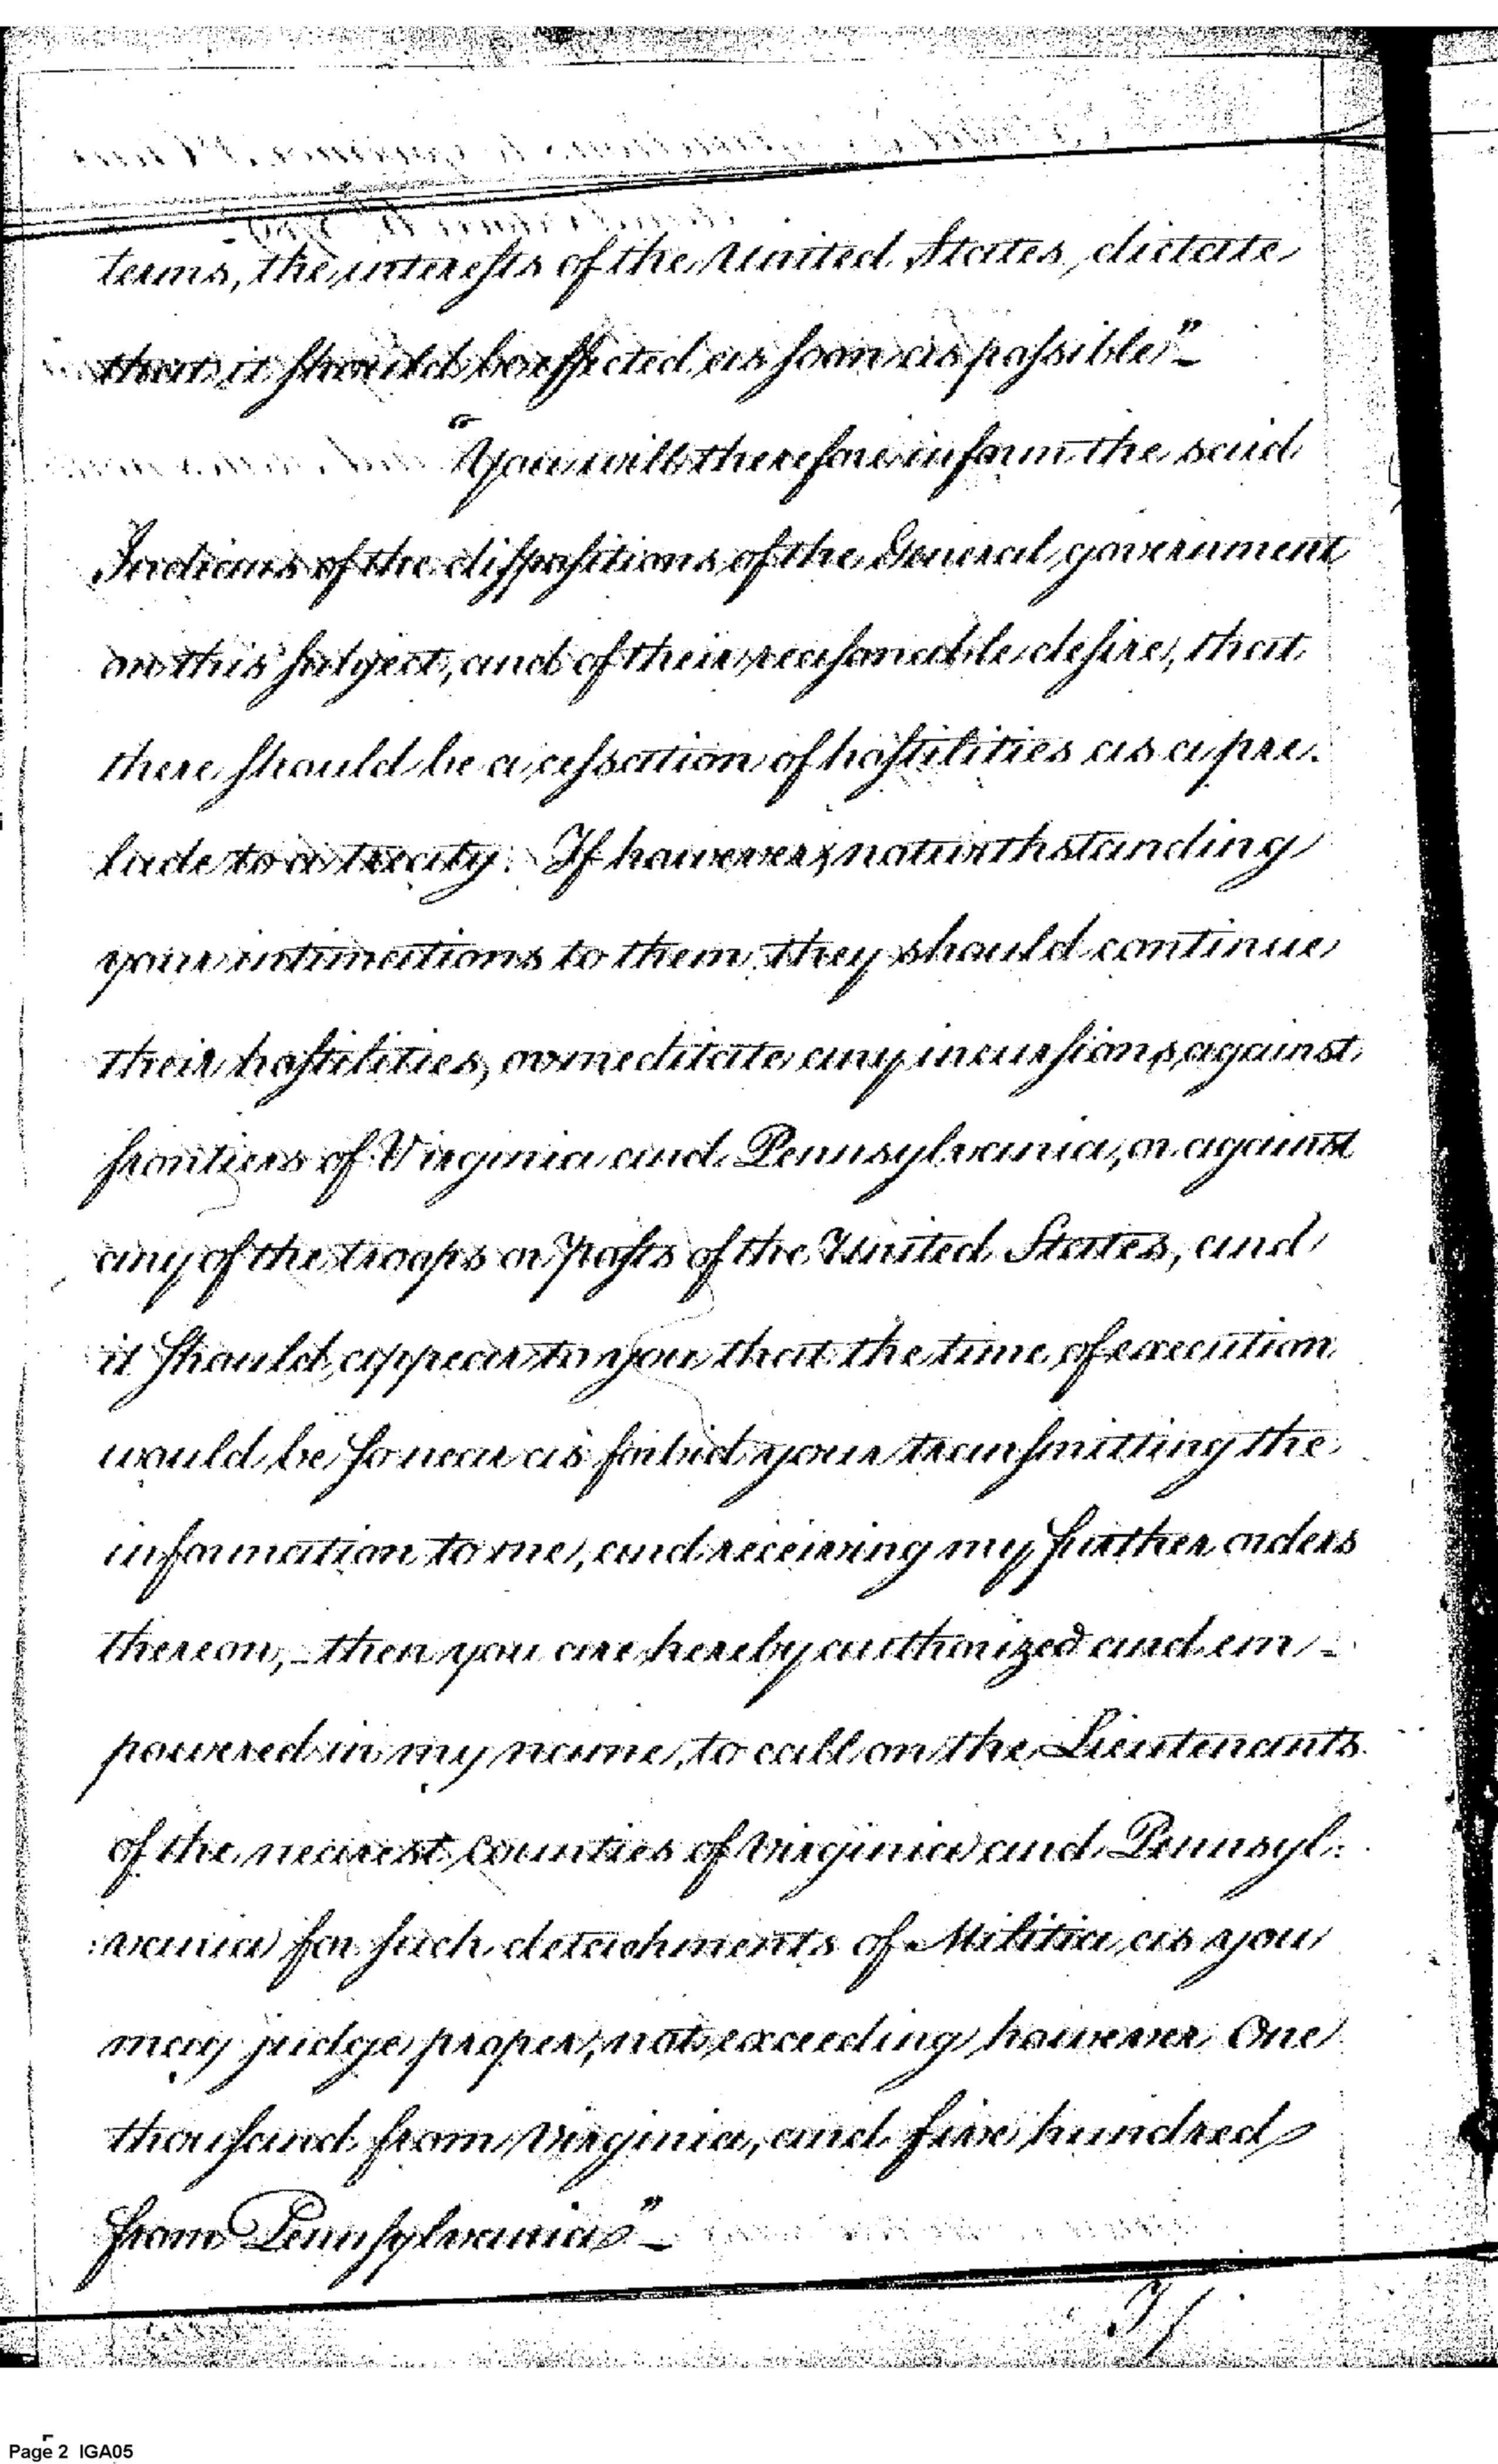 terms, the interests of the United States, dictate
that it should be effected as soon as possible"_
"You will therefore inform the said
Indians of the dispositions of the General government
on this subject, and of their reasonable desire, that
there should be a cessation of hostilities as a pre.
lude to a treaty. If however, notwithstanding
your intimations to them, they should continue
their hostilities, or meditate any incursions against
frontiers of Virginia and Pennsylvania, or against
any of the troops or posts of the United States, and
it should appear to you that the time of execution
would be so near as forbid your transmitting the
information to me, and receiving my further orders
thereon, - then you are hereby authorized and em-
powered in my name, to call on the Lieutenants
of the nearest counties of Virginia and Pennsyl:
:vania for such detachments of Militia, as you
may judge proper, not exceeding however One
thousand from Virginia, and five hundred
from Pennsylvania"_
Page 2 IGA05